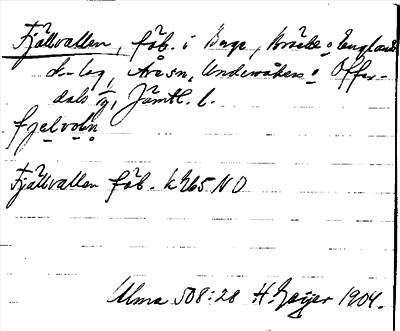 Fjällvallen, fäb. i Berge, Bräcke o. England
d-lag, Aresn, Undersåkers o. Offer-
dals tg, Jämtl. l.
fjelvoln
Fjällvallen fäb. k 965 NO
Ulma 508:28 H. Geijer 1904.